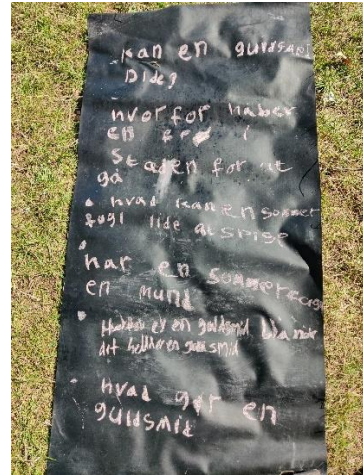 kan en guldsmed
Dideg
hvorfor haber
en frø i
Staden for at
gå
hvad kan en sommer
fugl lide at spise
har en sommerfugl
en mund
Hvordan er en guldsmid blandt
det hedder en guldsmid
Hvad gør en
guldsmid